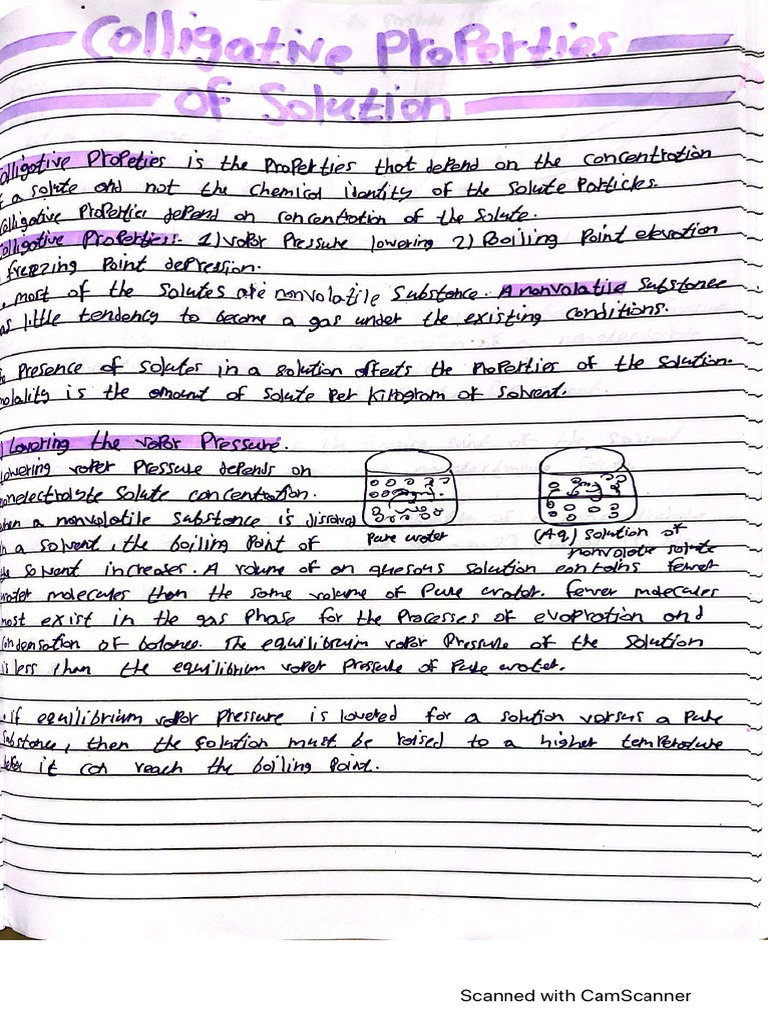 Colligative Properties
of Solution
olligative Propeties is the Properties that depend on the concentration
a solute and not the chemical identity of the solute Particles.
olligative Properties depend on concentration of the solute.
olligative Properties: 1) vapor Pressure lowering 2) Boiling Point elevation
freezing Point depression.
most of the solutes are nonvolatile substance. A nonvolatile substance
as little tendency to become a gas under the existing conditions.
Presence of solutes in a solution affects the Properties of the solution.
molality is the amount of solute Per Kilogram of solvent.
Lowering the vapor Pressure.
lowering vapor Pressure depends on
onelectrolyte solute concentration.
hen a nonvolatile substance is dissolved
in a solvent, the boiling Point of
Pure water
(Aq) solution of
nonvolate solute
the solvent increases. A volume of an queous solution contains fewer
water molecules then the same volume of Pure water. fewer molecules
most exist in the gas Phase for the Processes of and
ondensation of balance. The equilibrium vapor Pressure of the solution
is less than the equilibrium vapor Pressure of Pure water.
if equilibrium vapor Pressure is lowered for a solution versus a Pure
substance, then the solution must be raised to a higher temperature
it can reach the boiling Point.
Scanned with CamScanner